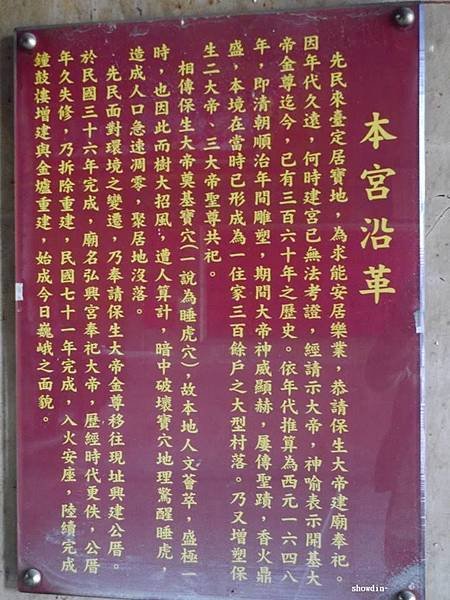 本宮沿革
先民來臺定居寶地，為求能安居樂業，恭請保生大帝建廟奉祀。
因年代久遠，何時建宮已無法考證，經請示大帝，神喻表示開基大
帝金尊迄今，已有三百六十年之歷史。依年代推算為西元一六四八
年，即清朝順治年間雕塑，期間大帝神威顯赫，屢傳聖蹟，香火鼎
盛，本境在當時已形成為一住家三百餘戶之大型村落。乃又增塑保
生二大帝、三大帝聖尊共祀。
相傳保生大帝奠基寶穴(一說為睡虎穴)，故本地人文薈萃，盛極一
時，也因此而樹大招風，遭人算計，暗中破壞寶穴地理驚醒睡虎，
造成人口急速凋零，聚居地沒落。
先民面對環境之變遷，乃奉請保生大帝金尊移往現址興建公厝。
於民國三十六年完成，廟名弘興宮奉祀大帝，歷經時代更佚，公厝
年久失修，乃拆除重建，民國七十一年完成，入火安座，陸續完成
鐘鼓樓增建與金爐重建，始成今日巍峨之面貌。
showdin